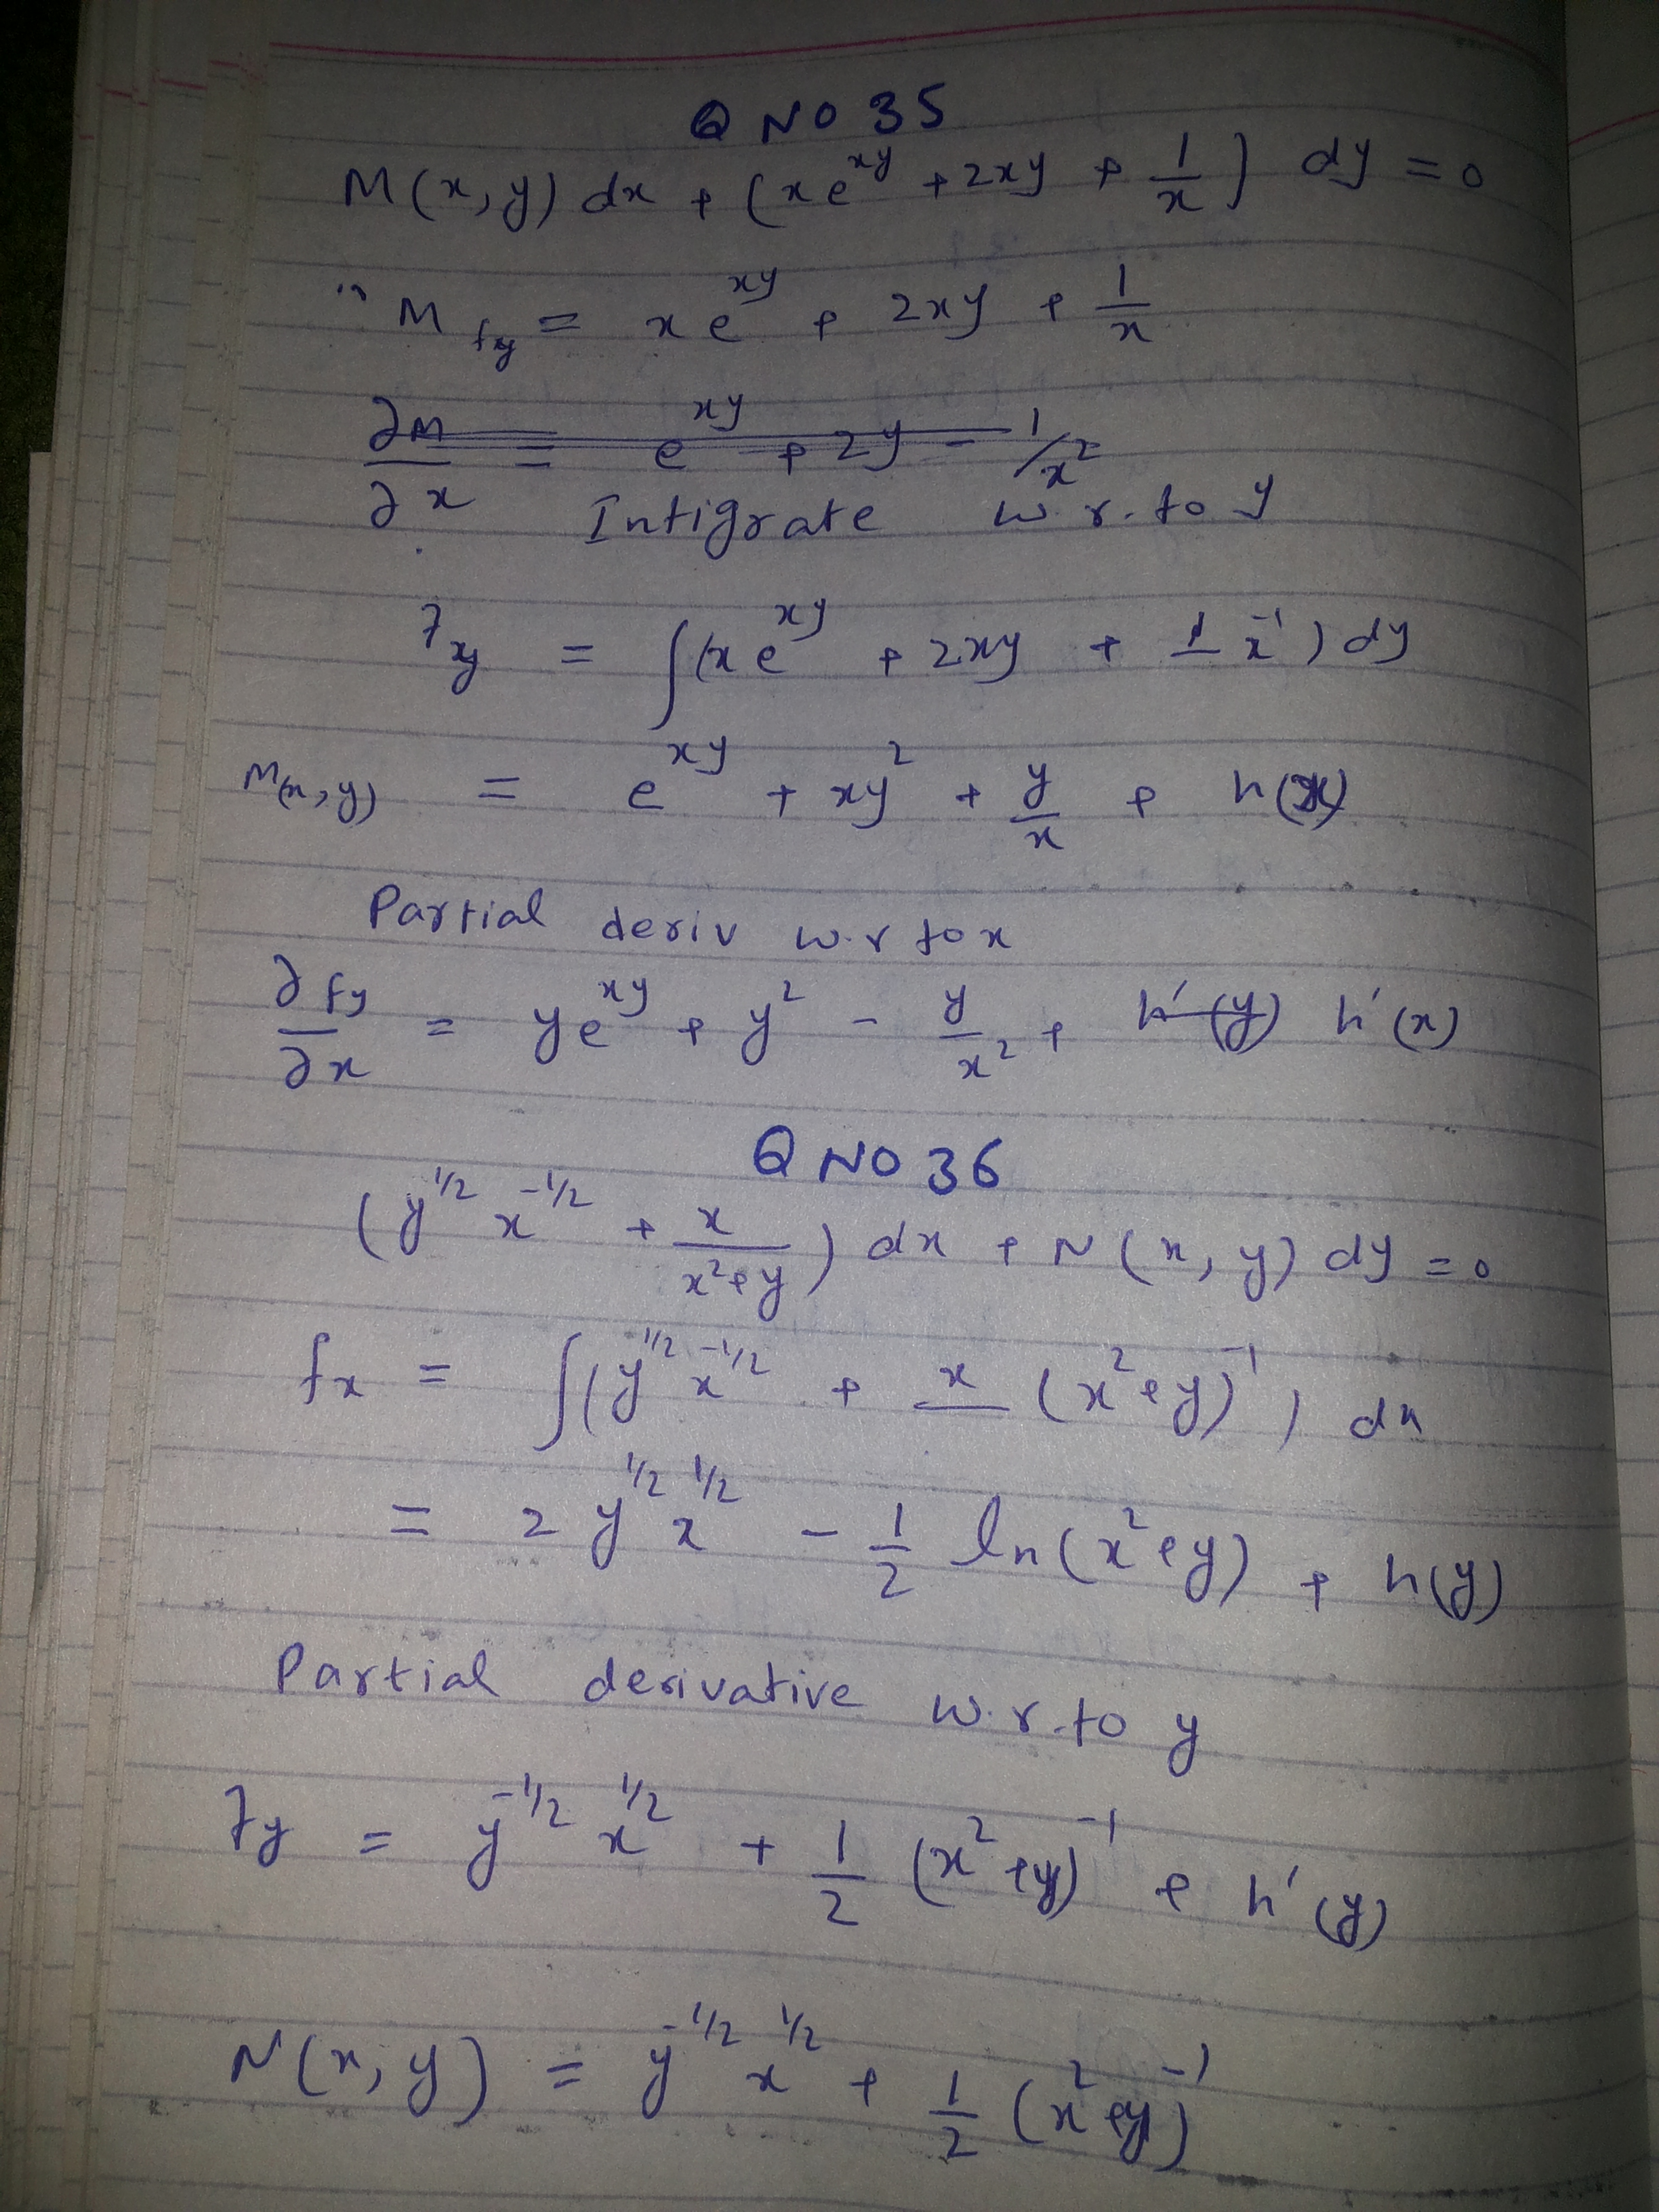 Q NO 35
M(x, y) dx + (xe^xy + 2xy + 1/x) dy = 0
∵ M fxy = x e^xy + 2xy + 1/x
∂M/∂x = e^xy + 2y - 1/x²
Intigrate w.r.to y
fxy = ∫(xe^xy + 2xy + 1 x^-1) dy
M(x,y) = e^xy + xy² + y/x + h(x)
Partial deriv w.r to x
∂fy/∂x = ye^xy + y² - y/x² + h'(y) h'(x)
Q NO 36
(y^1/2 x^-1/2 + x/x²+y) dx + N(x, y) dy = 0
fx = ∫(y^1/2 x^-1/2 + x (x²+y)^-1) dx
= 2 y^1/2 x^1/2 - 1/2 ln(x²+y) + h(y)
Partial derivative w.r.to y
fy = y^-1/2 x^1/2 + 1/2 (x²+y)^-1 + h'(y)
N(x, y) = y^-1/2 x^1/2 + 1/2 (x²+y)^-1